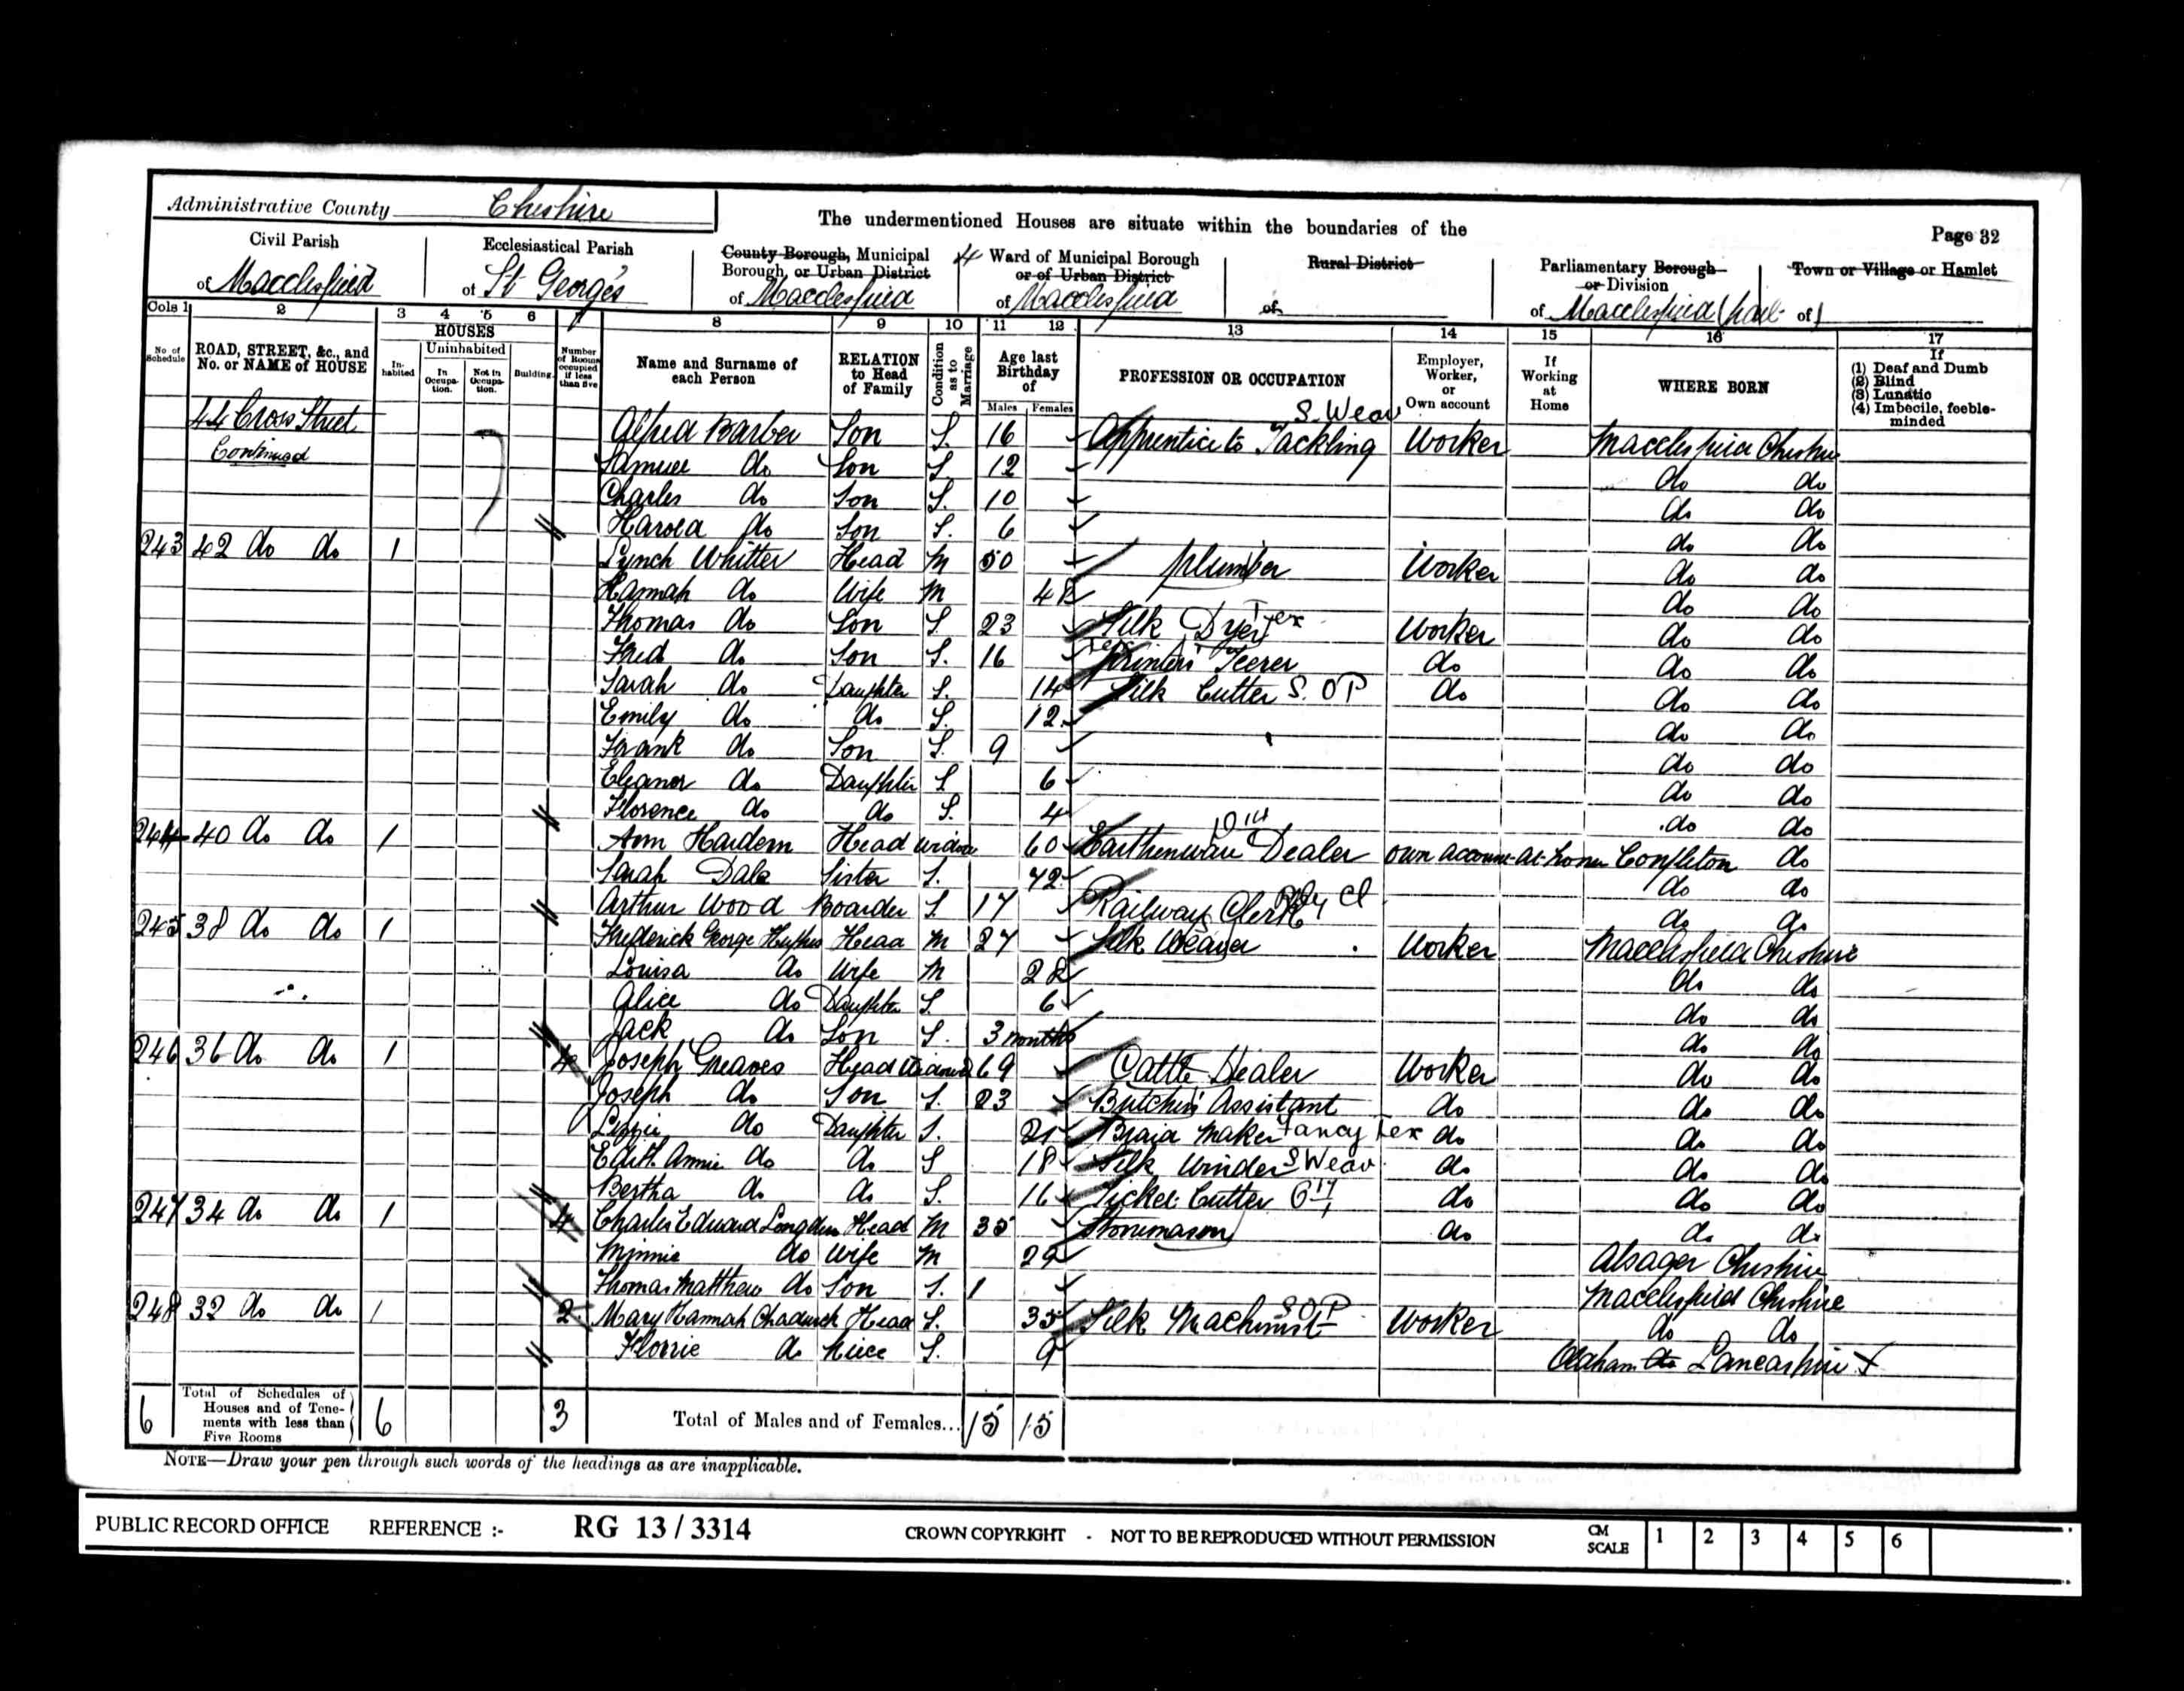 Administrative County Cheshire
The undermentioned Houses are situate within the boundaries of the
Page 32
Civil Parish of Macclesfield
Ecclesiastical Parish of St George's
County Borough, Municipal Borough, or Urban District of Macclesfield
4 Ward of Municipal Borough or of Urban District of Macclesfield
Rural District of
Parliamentary Borough or Division of Macclesfield (part)
Town or Village or Hamlet of
Cols 1 2 3 4 5 6 7 8 9 10 11 12 13 14 15 16 17
No of Schedule
ROAD, STREET, &c., and No. or NAME of HOUSE
HOUSES
In-habited
Uninhabited
In Occupa-tion.
Not in Occupa-tion.
Building.
Number of Rooms occupied if less than five
Name and Surname of each Person
RELATION to Head of Family
Condition as to Marriage
Age last Birthday of
Males Females
PROFESSION OR OCCUPATION
Employer, Worker, or Own account
If Working at Home
WHERE BORN
If (1) Deaf and Dumb (2) Blind (3) Lunatic (4) Imbecile, feeble-minded
44 Cross Street Alfred Barber Son S. 16 Apprentice to Tackling S. Weav Worker Macclesfield Cheshire
Continued Samuel do Son S. 12 do do
Charles do Son S. 10 do do
Harold do Son S. 6 do do
243 42 do do 1 Lynch Whitter Head M 50 plumber Worker do do
Hannah do Wife M 48 do do
Thomas do Son S 23 Silk Dyer Tex Worker do do
Fred do Son S. 16 Printers' Teerer Tex do do do
Sarah do Daughter S. 14 Silk Cutter S.O.P do do do
Emily do do S. 12 do do
Frank do Son S. 9 do do
Eleanor do Daughter S 6 do do
Florence do do S. 4 do do
244 40 do do 1 Ann Hardern Head Widow 60 Earthenware Dealer own account At home Congleton do
Sarah Dale Sister S. 72 do do
Arthur Wood Boarder S. 17 Railway Clerk Rly Cl do do
245 38 do do 1 Frederick George Hughes Head M 27 Silk Weaver Worker Macclesfield Cheshire
Louisa do Wife M 28 do do
Alice do Daughter S. 6 do do
Jack do Son S. 3 months do do
246 36 do do 1 4 Joseph Greaves Head Widower 69 Cattle Dealer Worker do do
Joseph do Son S. 23 Butchers Assistant do do do
Lizzie do Daughter S. 21 Braid Maker Fancy Tex do do do
Edith Annie do do S 18 Silk Winder S Weav do do do
Bertha do do S. 16 Ticket Cutter do do do
247 34 do do 1 4 Charles Edward Longden Head M 35 Stonemason do do do
Minnie do Wife M 29 Alsager Cheshire
Thomas Matthew do Son S. 1 Macclesfield Cheshire
248 32 do do 1 2 Mary Hannah Chadwick Head S. 35 Silk Machinist S.O.P Worker do do
Florrie do Niece S. 9 Oldham do Lancashire X
6 Total of Schedules of Houses and of Tene-ments with less than Five Rooms 6 3 Total of Males and of Females... 15 15
NOTE—Draw your pen through such words of the headings as are inapplicable.
PUBLIC RECORD OFFICE REFERENCE :- RG 13 / 3314 CROWN COPYRIGHT - NOT TO BE REPRODUCED WITHOUT PERMISSION CM SCALE 1 2 3 4 5 6